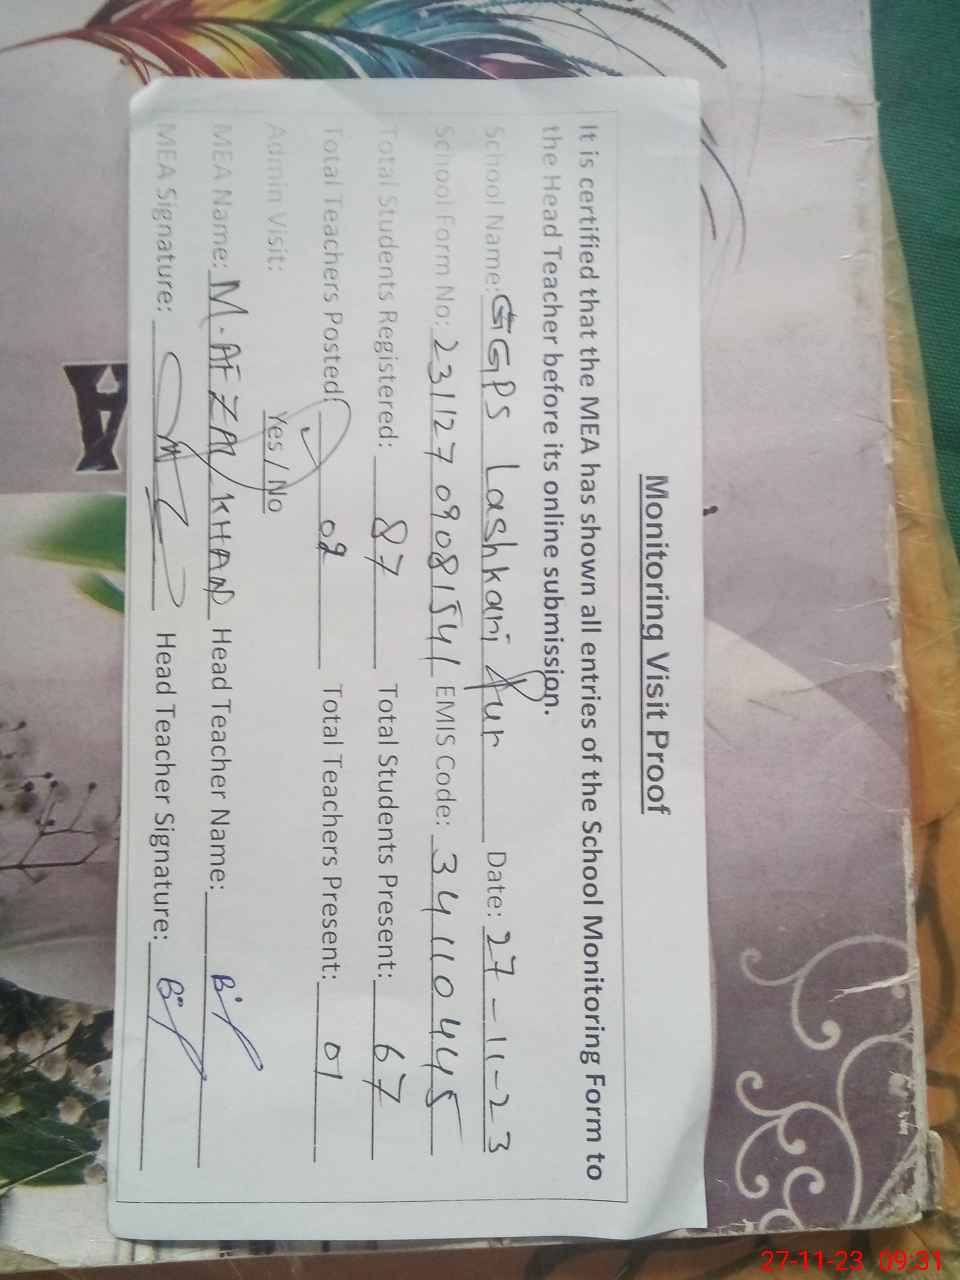 Monitoring Visit Proof
It is certified that the MEA has shown all entries of the School Monitoring Form to
the Head Teacher before its online submission.
School Name: GGPS Lashkari Pur Date: 27-11-23
School Form No: 23112709081541 EMIS Code: 34110445
Total Students Registered: 87 Total Students Present: 67
Total Teachers Posted: 02 Total Teachers Present: 01
Admin Visit: Yes / No
MEA Name: M.AFZAL KHAN Head Teacher Name:
MEA Signature: Head Teacher Signature:
A
27-11-23 09:31